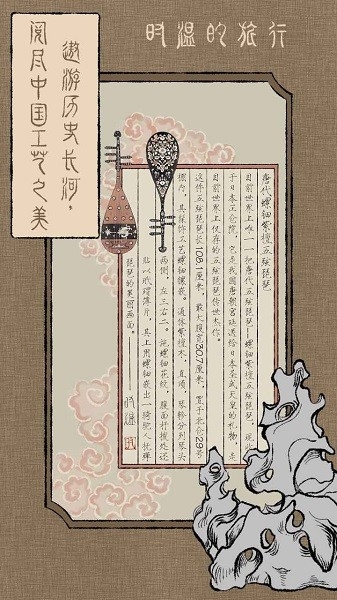 时温的旅行
遨游历史长河，
阅尽中国工艺之美
唐代螺钿紫檀五弦琵琶
目前世界上唯一一把唐代五弦琵琶—螺钿紫檀五弦琵琶，现
于日本正仓院，它是我国唐朝宫廷送给日本圣武天皇的礼物，是
目前世界上仅存的五弦琵琶传世木作。
这件五弦琵琶长108.1厘米，最大腹宽30.7厘米，置于北仓29号
棚内，具装饰工艺螺钿镶嵌。通体紫檀木，直项，琴轸分列琴头
两侧，左三右二。施螺钿花纹，腹面扞拨处还
贴以玳瑁薄片，其上用螺钿嵌出一骑驼人抚弹
琵琶的美丽画面。
时温